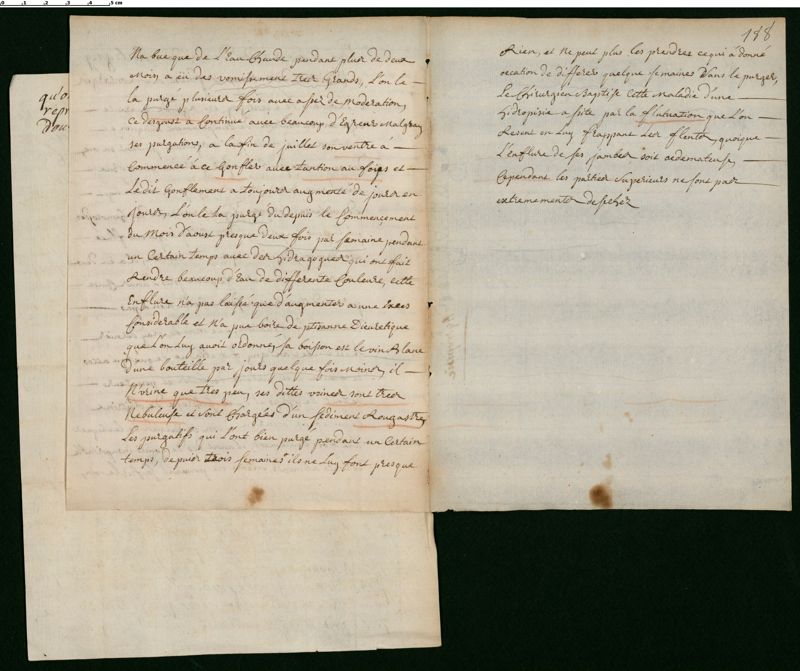 N'a bue que de l'Eau Chaude, pendant plus de deux
Mois, a eu des vomissement tres Grands, L'on le
la purgé plusieurs fois avec assés de moderation,
Ce degoust a Continué avec beaucoup d'Egreur Malgray
ses purgations, a la fin de juillet son ventre a
Commencé a ce Gonfler avec tantion au foies et
Le dit Gonflement a toujours augmenté de jours en
jours, L'on le la purgé du depuis le Commencement
du Mois d'aoust presque deux fois par semaine pendant
un Certain temps avec des hidragogues qui ont fait
Rendre beaucoup d'Eau de differente Couleure, cette
Enflure n'a pas laissé que d'augmenter a une
Considerable et N'a pue boire de ptisanne Dieuretique
que L'on Luy avoit ordonné, sa boisson est le vin Blanc
D'une bouteille par jours quelque fois Moins, il
N'urine que tres peu, ses dittes urines sont tres
Nebuleuse et sont Chargées d'un sediment Rougastre,
Les purgatifs qui L'ont bien purgé pendant un Certain
temps, depuis trois semaines ils ne Luy font presque
188
Rien, et Ne peut plus les prendres ce qui a donné
ocation de differer quelque semaines Dans le purger,
Le Chirurgien Baptise Cette Maladie d'une
hidropisie assite par la flutuation que L'on
Resent en Luy frappant Les flents, quoique
L'enflure de ses jambes soit oedemateuse,
Cependant les parties superieurs ne sont pas
extremements desechez
qu'o